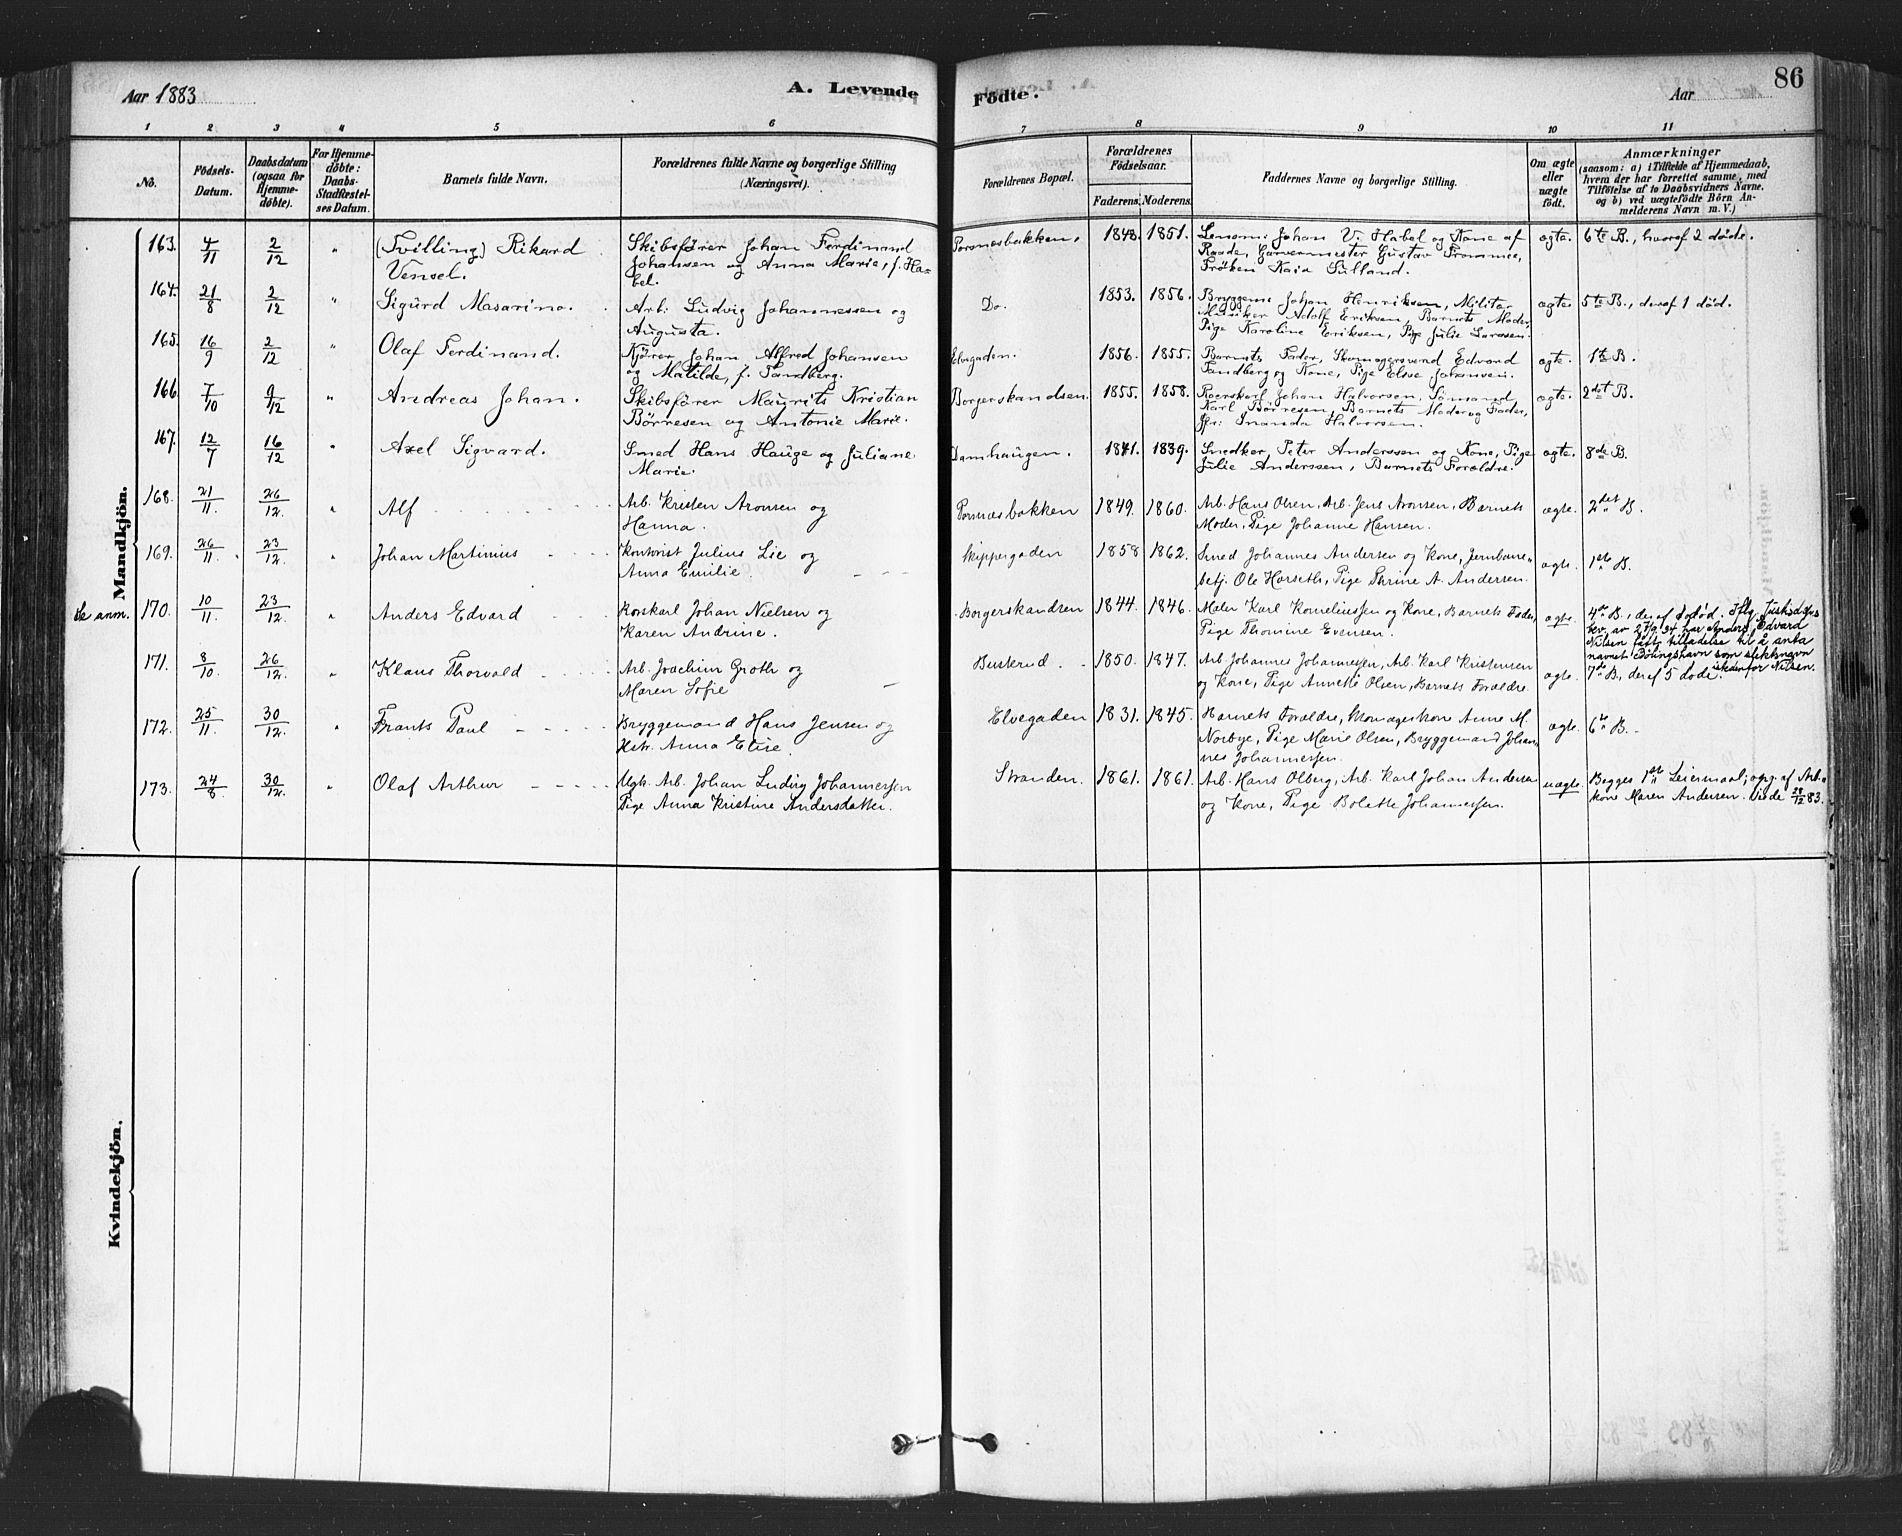 Aar 1883
A. Levende Födte.
Aar
86
1 2 3 4 5 6 7 8 9 10 11
No.
Födsels-Datum.
Daabsdatum (ogsaa for Hjemme-döbte).
For Hjemme-döbte: Daabs-Stadfæstel-ses Datum.
Barnets fulde Navn.
Forældrenes fulde Navne og borgerlige Stilling (Næringsvei).
Forældrenes Bopæl.
Forældrenes Födselsaar.
Faderens. Moderens.
Faddernes Navne og borgerlige Stilling.
Om ægte eller uægte födt.
Anmærkninger
(saasom: a) i Tilfælde af Hjemmedaab, hvem der har forrettet samme, med Tilföielse af to Daabsvidners Navne. og b) ved uægtefödte Börn Anmelderens Navn m. V.)
Mandkjön.
163. 4/11 2/12 " (Tvilling) Rikard
Vensel.
Skibsfører Johan Ferdinand
Johansen og Anna Marie, f. Ha-
bel.
Porsnesbakken. 1848. 1851.
Lensm: Johan V. Habel og Kone af
Raade, Garvermester Gustav Frommee,
Frøken Kaia Sulland.
ægte. 6te B., hvoraf 2 døde.
164. 21/8 2/12 " Sigurd Masarino.
Arb: Ludvig Johannessen og
Augusta.
Do. 1853. 1856.
Bryggem: Johan Henriksen, Militær
Musiker Adolf Eriksen, Barnets Moder,
Pige Karoline Eriksen, Pige Julie Larssen.
ægte. 5te B., deraf 1 død.
165. 16/9 2/12 " Olaf Ferdinand.
Kjører Johan Alfred Johansen
og Matilde, f. Sandberg.
Elvegaden. 1856. 1855.
Barnets Fader, Skomagersvend Edvard
Sandberg og Kone, Pige Elise Johansen.
ægte. 1te B.
166. 7/10 9/12 " Andreas Johan.
Skibsfører Maurits Kristian
Børresen og Antonie Marie.
Borgerskandsen. 1855. 1858.
Roerskarl Johan Halvorsen, Sømand
Karl Børresen, Barnets Moder og Fader,
Inanda Halvorsen.
ægte. 2det B.
167. 12/7 16/12 Axel Sigvard.
Smed Hans Hauge og Juliane
Marie.
Damhaugen. 1841. 1839.
Snedker Peter Anderssen og Kone, Pige
Julie Anderssen, Barnets Forældre.
ægte. 8de B.
168. 21/11 26/12 " Alf
Arb. Kristen Aronsen og
Hanna.
Porsnesbakken 1849. 1860.
Arb. Hans Olsen, Arb. Jens Aronsen, Barnets
Moder, Pige Johanne Hansen.
ægte. 2det B.
169. 26/11 23/12 " Johan Martinius
Kontorist Julius Lie og
Anna Emilie.
Skippergaden 1858 1862.
Smed Johannes Andersen og Kone, Jernbane-
betj. Ole Harseth, Pige Thrine A. Andersen.
ægte. 1ste B.
Se anm. 170. 10/11 23/12 " Anders Edvard
Korskarl Johan Nielsen og
Karen Andrine.
Borgerskandsen 1844. 1846.
Maler Karl Korneliussen og Kone, Barnets Fader,
Pige Thomine Evensen.
ægte.
4de B., deraf 1 død. Iflg. Justisdeps
bev. av 27/9 34 har Anders Edvard
Nilsen fått tilladelse til å anta
navnet Bølingshavn som slektsnavn
istedenfor Nilsen.
171. 8/10 26/12 " Klaus Thorvald
Arb. Joachim Groth og
Maren Sofie
Buskerud 1850. 1847.
Arb. Johannes Johannessen, Arb. Karl Kristensen
og Kone, Pige Annette Olsen, Barnets Forældre.
ægte. 7de B., deraf 5 døde.
172. 25/11 30/12 " Frants Paul
Bryggemand Hans Jensen og
Hstr. Anna Elise.
Elvegaden 1831. 1845.
Barnets Forældre, Skomagerkone Anne M.
Norbye, Pige Marie Olsen, Bryggemand Johan-
nes Johannessen.
ægte. 6te B.
173. 24/8 30/12 " Olaf Arthur
Ugk. Arb. Johan Ludvig Johannessen
Pige Anna Kristine Andersdatter.
Stranden. 1861. 1861.
Arb. Hans Olberg, Arb. Karl Johan Andersen
og Kone, Pige Bolette Johannessen.
uægte.
Begges 1ste Leiermaal; opg. af Arb.
kone Maren Andersen. Viede 28/12 83.
Kvindekjön.